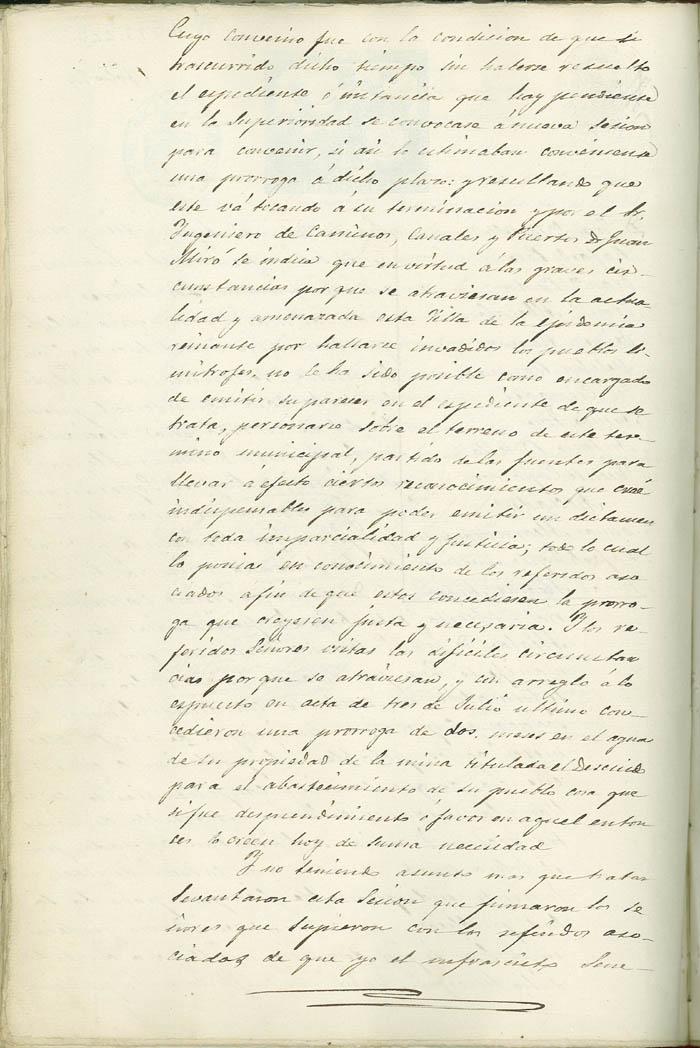 Cuyo convenio fue con la condision de que si
trascurrido dicho tiempo sin haberse resuelto
el espediente ó instancia que hay pendiente
en la Superioridad se convocase á nueva sesion
para convenir, si asi lo estimaban conveniente
una prorroga á dicho plazo: y resultando que
este vá tocando á su terminacion y por el Sr.
Yngeniero de Caminos, Canales y Puertos Dn Juan
Miró se indica que en virtud á las graves cir-
cunstancias por que se atraviesan en la actua
lidad y amenazada esta Villa de la Epidemia
reinante por hallarse invadidos los pueblos li-
mitrofes, no le ha sido posible como encargado
de emitir su pareser en el espediente de que se
trata, personarse sobre el terreno de este ter-
mino municipal, partido de las fuentes para
llevar á efecto ciertos reconocimientos que creé
indispensables para poder emitir un dictamen
con toda imparcialidad y Justicia; todo lo cual
lo ponia en conocimiento de los referidos aso
ciados á fin de que estos concediesen la prorro-
ga que creyesen justa y necesaria. Y los re-
feridos Señores vistas las dificiles circunstan
cias por que se atraviesan, y con arreglo á lo
espuesto en acta de tres de Julio ultimo con-
cedieron una prorroga de dos meses en el agua
de su propiedad de la mina titulada el Descuido
para el abastecimiento de su pueblo cosa que
si fue desprendimiento ó favor en aquel enton
ces lo creen hoy de suma necesidad
Y no teniendo asunto mas que tratar
levantaron esta Sesion que firmaron los Se
ñores que supieron con los referidos aso-
ciados de que yo el infrascrito Secre-